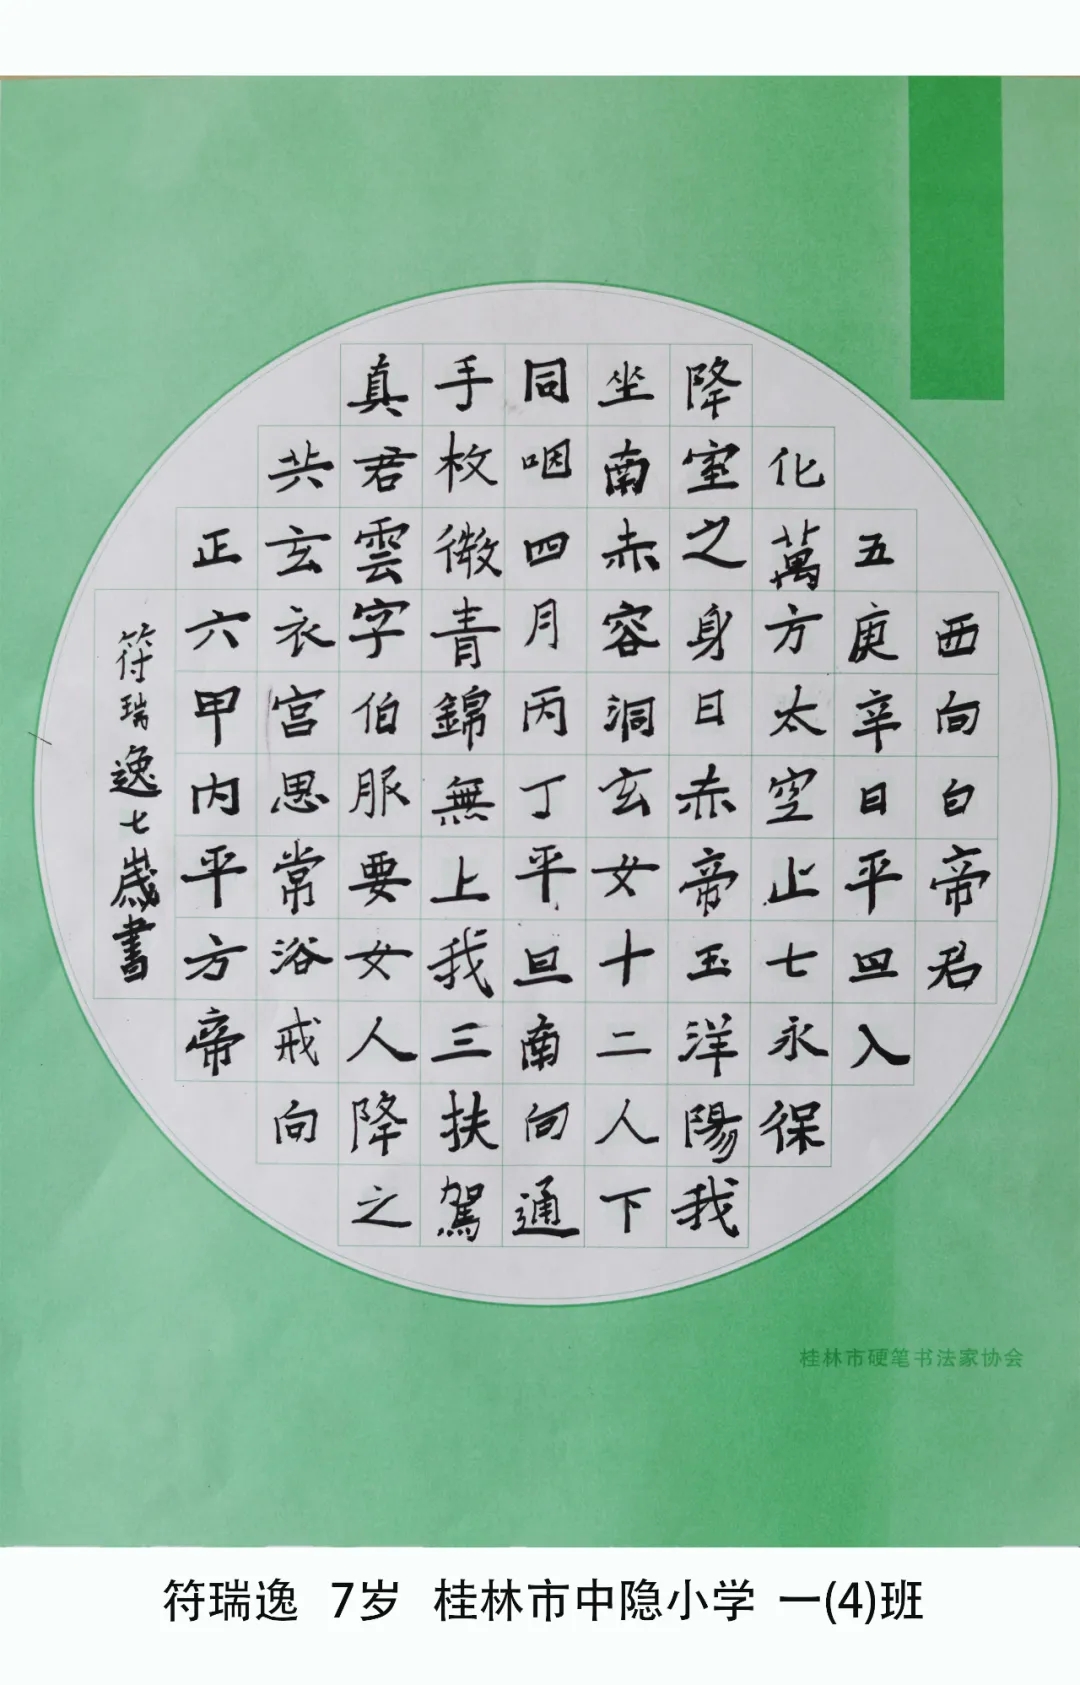 西向白帝君
五庚辛日平四入
化萬方太空止七永保
降室之身日赤帝玉洋陽我
坐南赤容洞玄女十二人下
同咽四月丙丁平旦南向通
手枚微青錦無上我三扶駕
真君雲字伯服要女人降之
共玄衣宫思常浴戒向
正六甲内平方帝
符瑞逸七歲書
桂林市硬笔书法家协会
符瑞逸 7岁 桂林市中隐小学 一(4)班